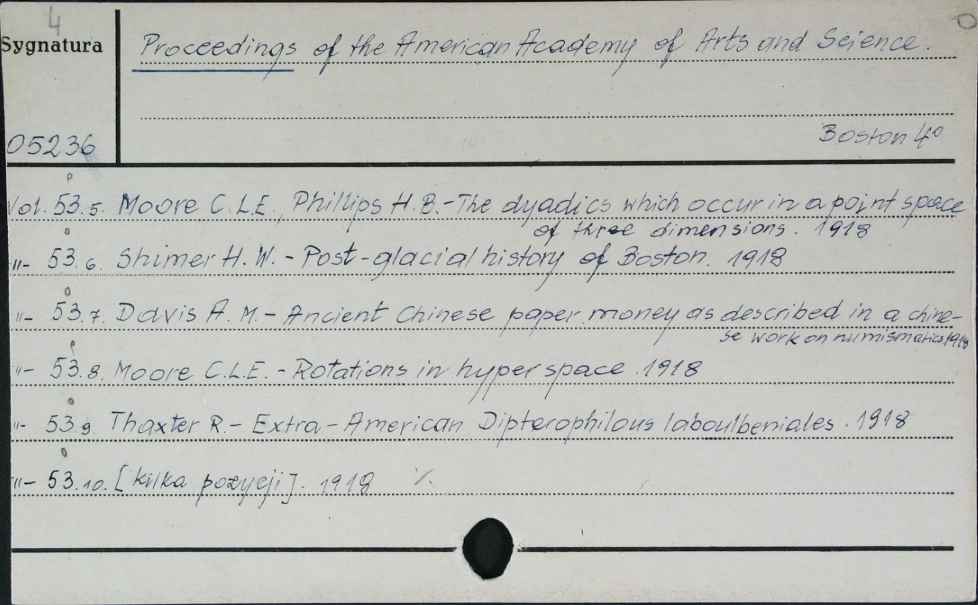 4
Sygnatura
Proceedings of the American Academy of Arts and Science.
05236
Boston 4º
Vol. 53.5. Moore C.L.E., Phillips H.B.-The dyadics which occur in a point space
of three dimensions. 1918
"- 53.6. Shimer H.W.- Post-glacial history of Boston. 1918
"- 53.7. Davis A.M.- Ancient Chinese paper money as described in a chine-
se work on numismatics 1918
"- 53.8. Moore C.L.E.- Rotations in hyper space. 1918
"- 53.9. Thaxter R.- Extra-American Dipterophilous laboulbeniales. 1918
"- 53.10. [kilka pozycji]. 1918 ./.